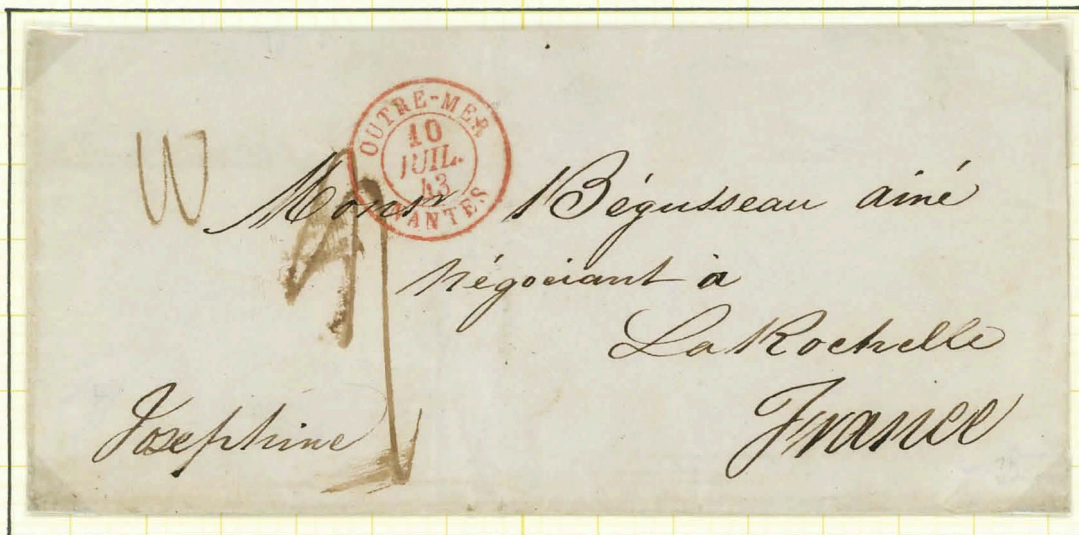 OUTRE-MER
10
JUIL.
43
NANTES
Monsr Bégusseau ainé
négociant à
La Rochelle
France
Josephine